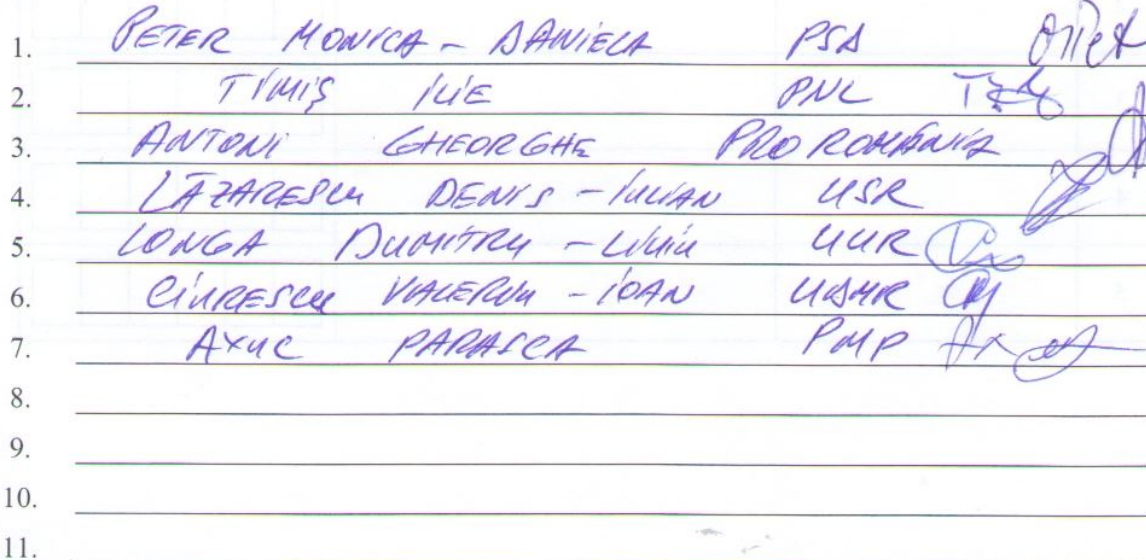 1. PETER MONICA - DANIELA PSD
2. TIMIȘ ILIE PNL
3. ANTONI GHEORGHE PRO ROMÂNIA
4. LĂZARESCU DENIS - IULIAN USR
5. LONGA DUMITRU - LIVIU UUR
6. CIURESCU VALERIU - IOAN UDMR
7. AXUC PARASCA PMP
8.
9.
10.
11.